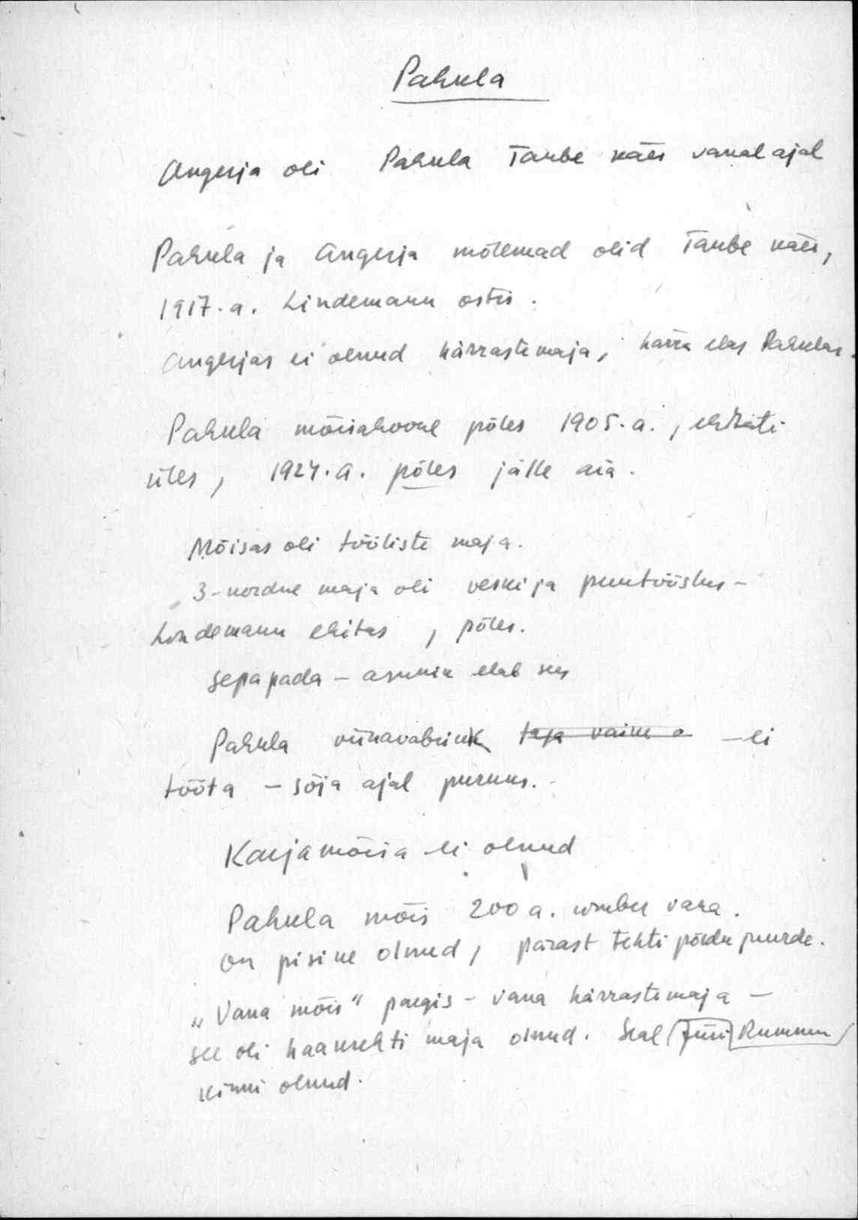 Pahula
Angerja oli Pahula Taube käes vanal ajal
Pahula ja Angerja mõlemad olid Taube käes,
1917.a. Lindemann ostis.
Angerjas ei olnud härrastemaja, härra elas Pahulas.
Pahula mõisahoone põles 1905.a., ehitati
üles, 1924.a. põles jälle ära.
Mõisas oli tööliste maja.
3-kordne maja oli veski ja puutööstus -
Lindemann ehitas, põles.
Sepapada - asunik elab sees
Pahula viinavabrik - ei
tööta - sõja ajal purunes.
Karjamõisa ei olnud
Pahula mõis 200 a. umbes vana.
On pisine olnud, pärast tehti põldu juurde.
„Vana mõis" pargis - vana härrastemaja -
see oli haamrehti maja olnud. Seal Jüri Rummu
kinni olnud.